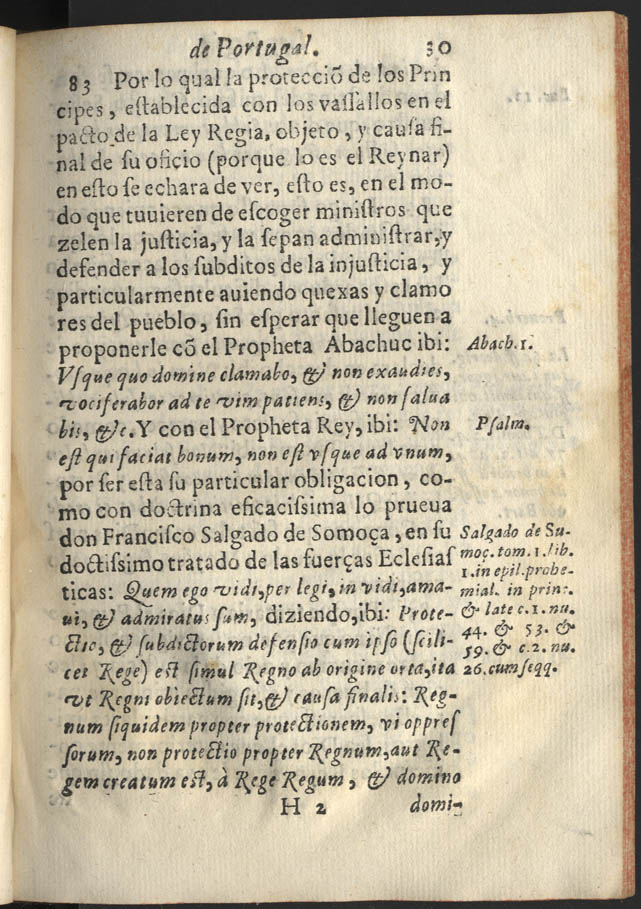 de Portugal. 30
83 Por lo qual la protecciõ de los Prin
cipes, eſtablecida con los vaſſallos en el
pacto de la Ley Regia, objeto, y cauſa fi-
nal de ſu oficio (porque lo es el Reynar)
en eſto ſe echara de ver, eſto es, en el mo-
do que tuuieren de eſcoger miniſtros que
zelen la juſticia, y la ſepan adminiſtrar, y
defender a los ſubditos de la injuſticia, y
particularmente auiendo quexas y clamo
res del pueblo, ſin eſperar que lleguen a
proponerle cõ el Propheta Abachuc ibi:
Vſque quo domine clamabo, & non exaudies,
vociferabor ad te vim patiens, & non ſalua
bis, &c. Y con el Propheta Rey, ibi: Non
eſt qui faciat bonum, non eſt vſque ad vnum,
por ſer eſta ſu particular obligacion, co-
mo con doctrina eficaciſsima lo prueua
don Franciſco Salgado de Somoça, en ſu
doctiſsimo tratado de las fuerças Ecleſiaſ
ticas: Quem ego vidi, per legi, in vidi, ama-
ui, & admiratus ſum, diziendo, ibi: Prote-
ctio, & ſubdictorum defenſio cum ipſo (ſcili-
cet Rege) eſt ſimul Regno ab origine orta, ita
vt Regni obiectum ſit, & cauſa finalis: Reg-
num ſiquidem propter protectionem, vi oppreſ
ſorum, non protectio propter Regnum, aut Re-
gem creatum eſt, à Rege Regum, & domino
H 2 domi-
Abach. 1.
Pſalm.
Salgado de Su-
moç. tom. 1. lib.
1. in epil. probe-
mial. in princ.
& late c. 1. nu.
44. & 53. &
59. & c. 2. nu.
26. cum ſeqq.